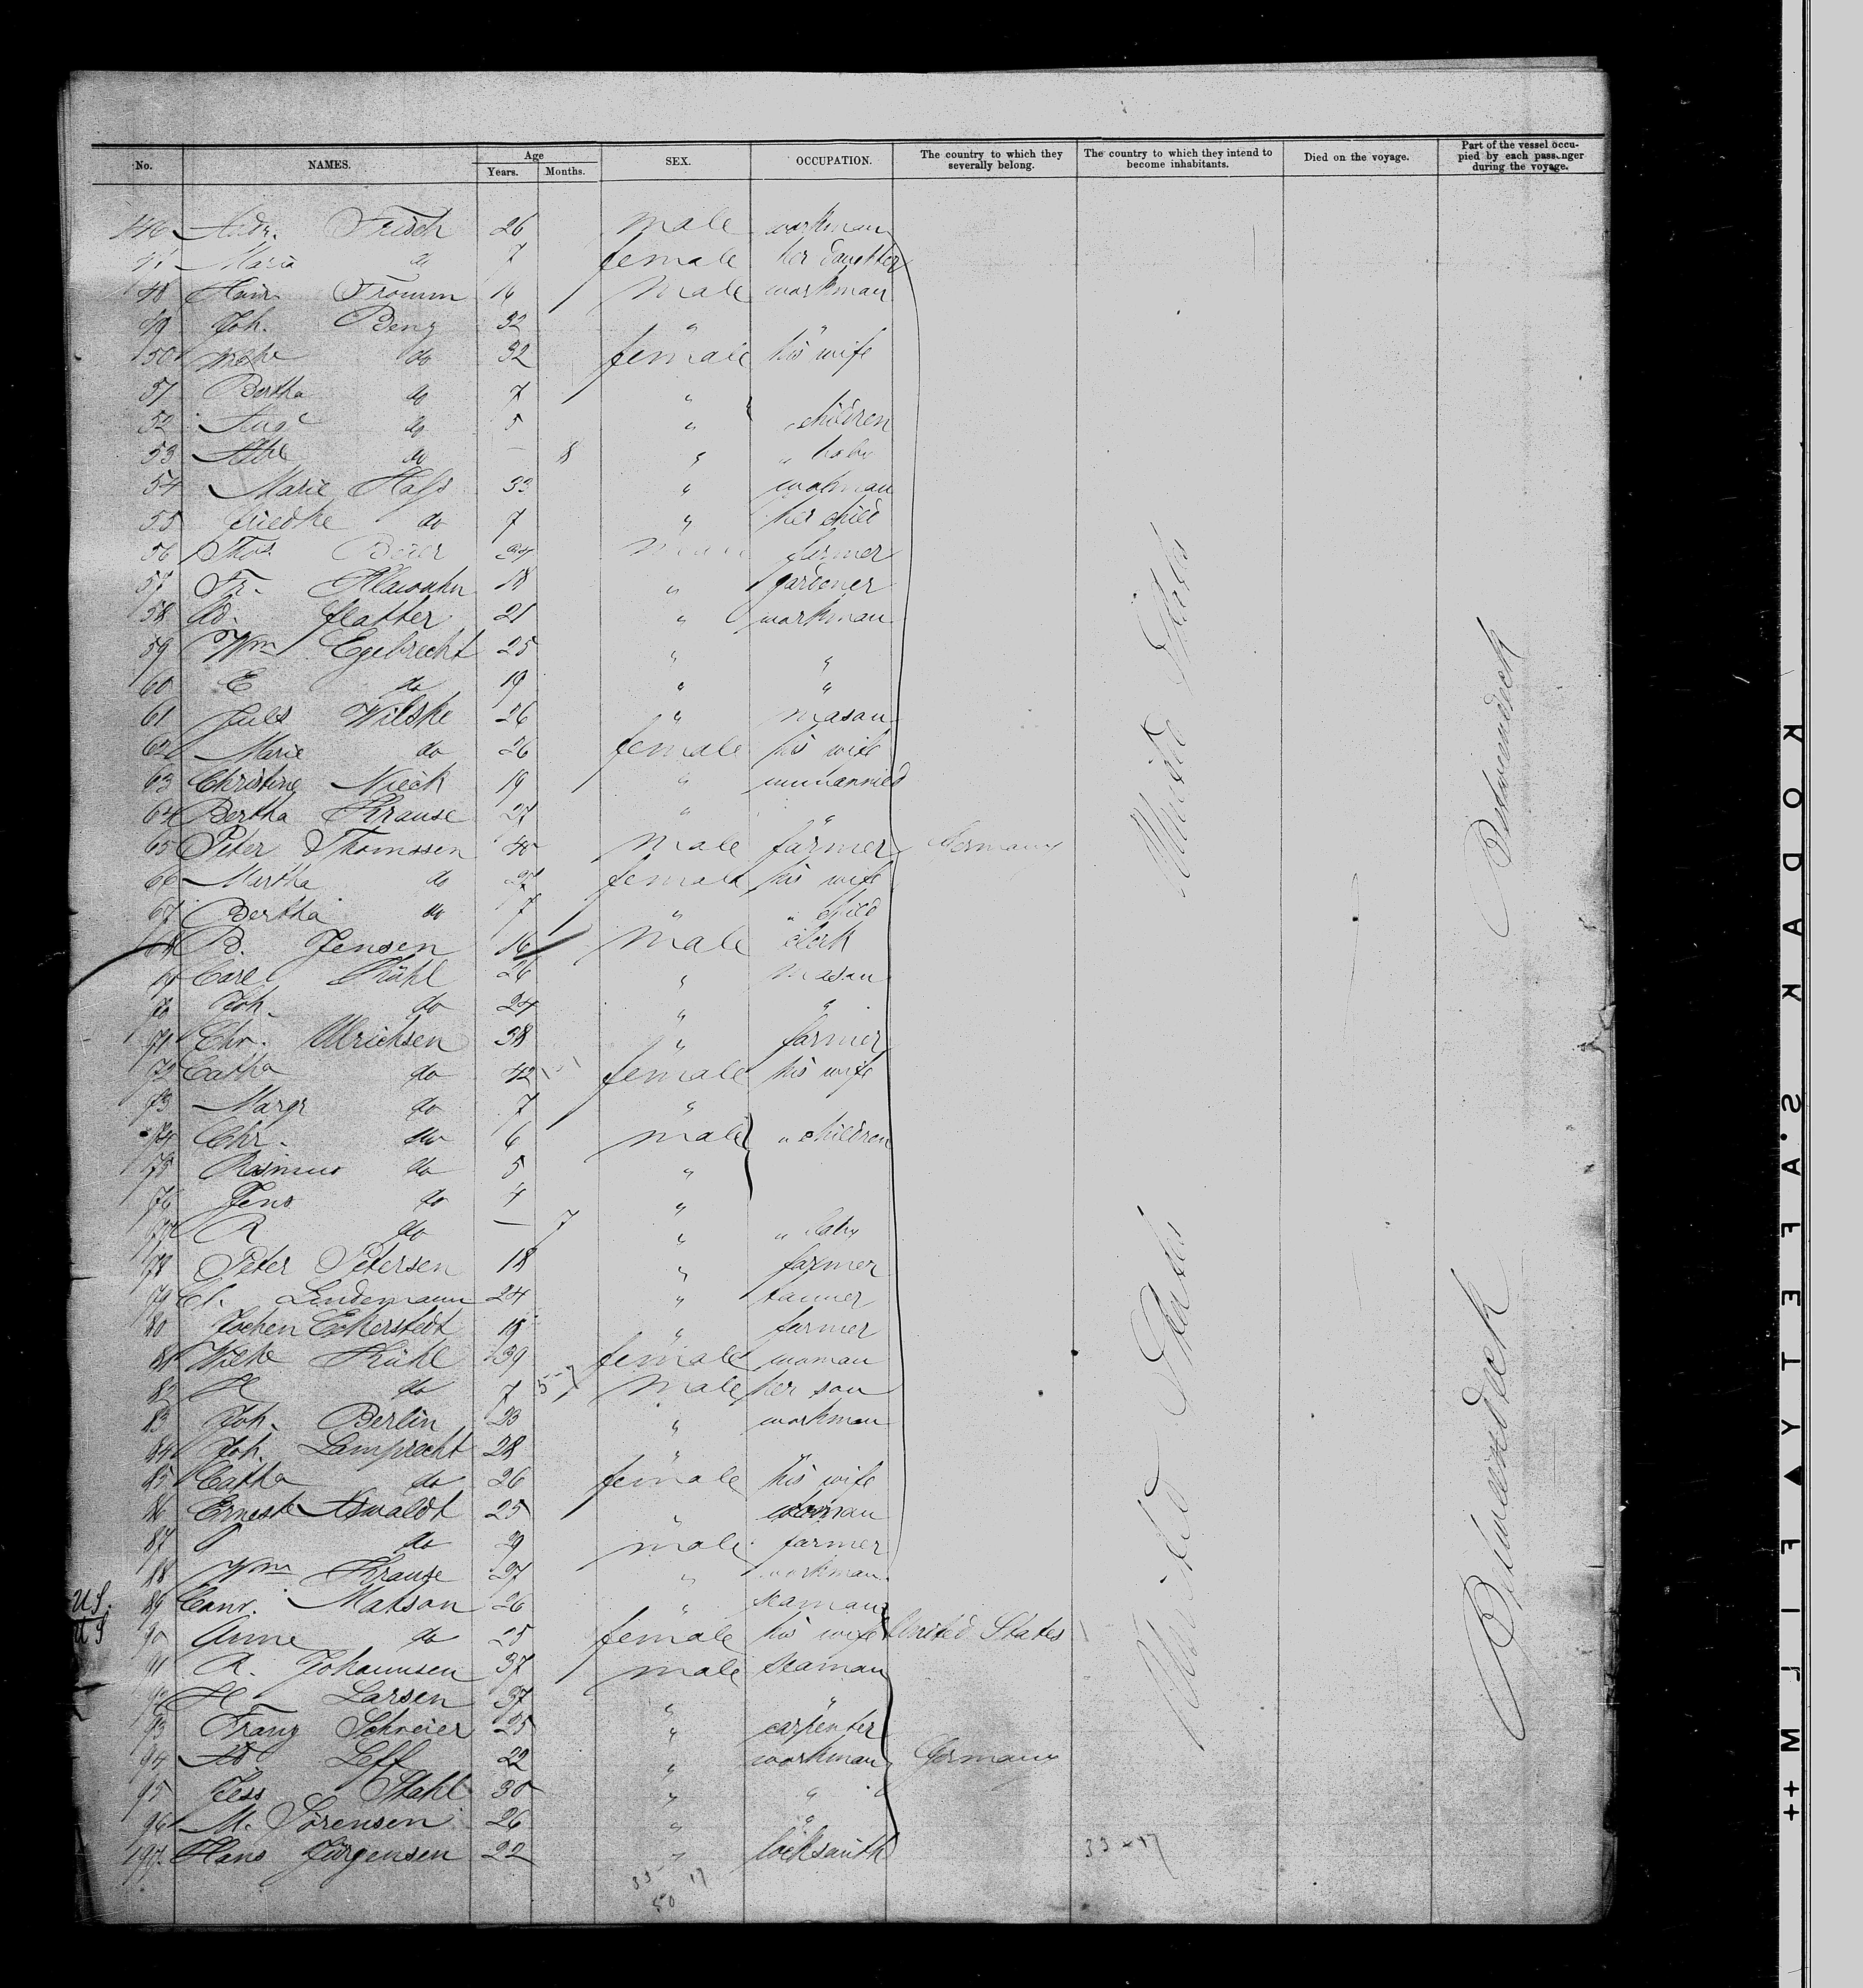 No. NAMES. Age Years. Months. SEX. OCCUPATION. The country to which they severally belong. The country to which they intend to become inhabitants. Died on the voyage. Part of the vessel occupied by each passenger during the voyage.
Frisch 26 male workman
47 Maria do 7 female her daughter
48 Heinr. Fromm 16 male workman
49 Joh. Benz 32 " "
50 do 32 female his wife
51 Bertha do 7 "
52 do 5 " " children
53 do — 8 " " baby
54 Marie Hass 33 "
55 do 7 " her child
56 Beier farmer
57 Fr. 18 " gardener
58 Ad. 21 " workman
59 Wm Egebrecht 25 " "
60 E do 19 " "
61 Juls Wilske 26 " mason
62 Marie do 26 female his wife
63 Christine Nieck 19 " unmarried
64 Bertha Krause 27 " "
65 Peter Thomssen 40 male farmer Germany United States Betweendeck
66 Martha do 27 female his wife
67 Bertha do 7 " " child
68 B. Jensen 16 male clerk
69 Carl Kühl 26 " mason
70 Joh. do 24 " "
71 Chr. Ulrichsen 38 " farmer
72 Catha do 42 female his wife
73 Margr do 7 "
74 Chr. do 6 male " children
75 Rasmus do 5 "
76 Jens do 4 "
77 R do — 7 " " baby
78 Peter Petersen 18 " farmer
79 Cl. Lindemann 24 " tanner
80 Jochen Eckerstedt 18 " farmer
81 Wilke Kühl 39 female woman
82 H do 7 male her son
83 Joh. Berlin 23 " workman
84 Joh. Lamprecht 28 " "
85 Catha do 26 female his wife
86 Ernest 25 " woman
87 do male farmer
88 Wm Krause 27 " workman United States Betweendeck
U.S. 89 Conr. Matson 26 " seaman
U S 90 Anne do 25 female his wife United States
91 R. Johannsen 37 male seaman
92 H Larsen 37 " "
93 Franz Schreier 25 " carpenter
94 Ad Leff 22 " workman Germany
95 Jess Stahl 30 " "
96 M. Sörensen 26 " "
497. Hans Jürgensen 22 " locksmith 33 17
33 17
50
KODAK S.A.FETY ▲ FILM ++